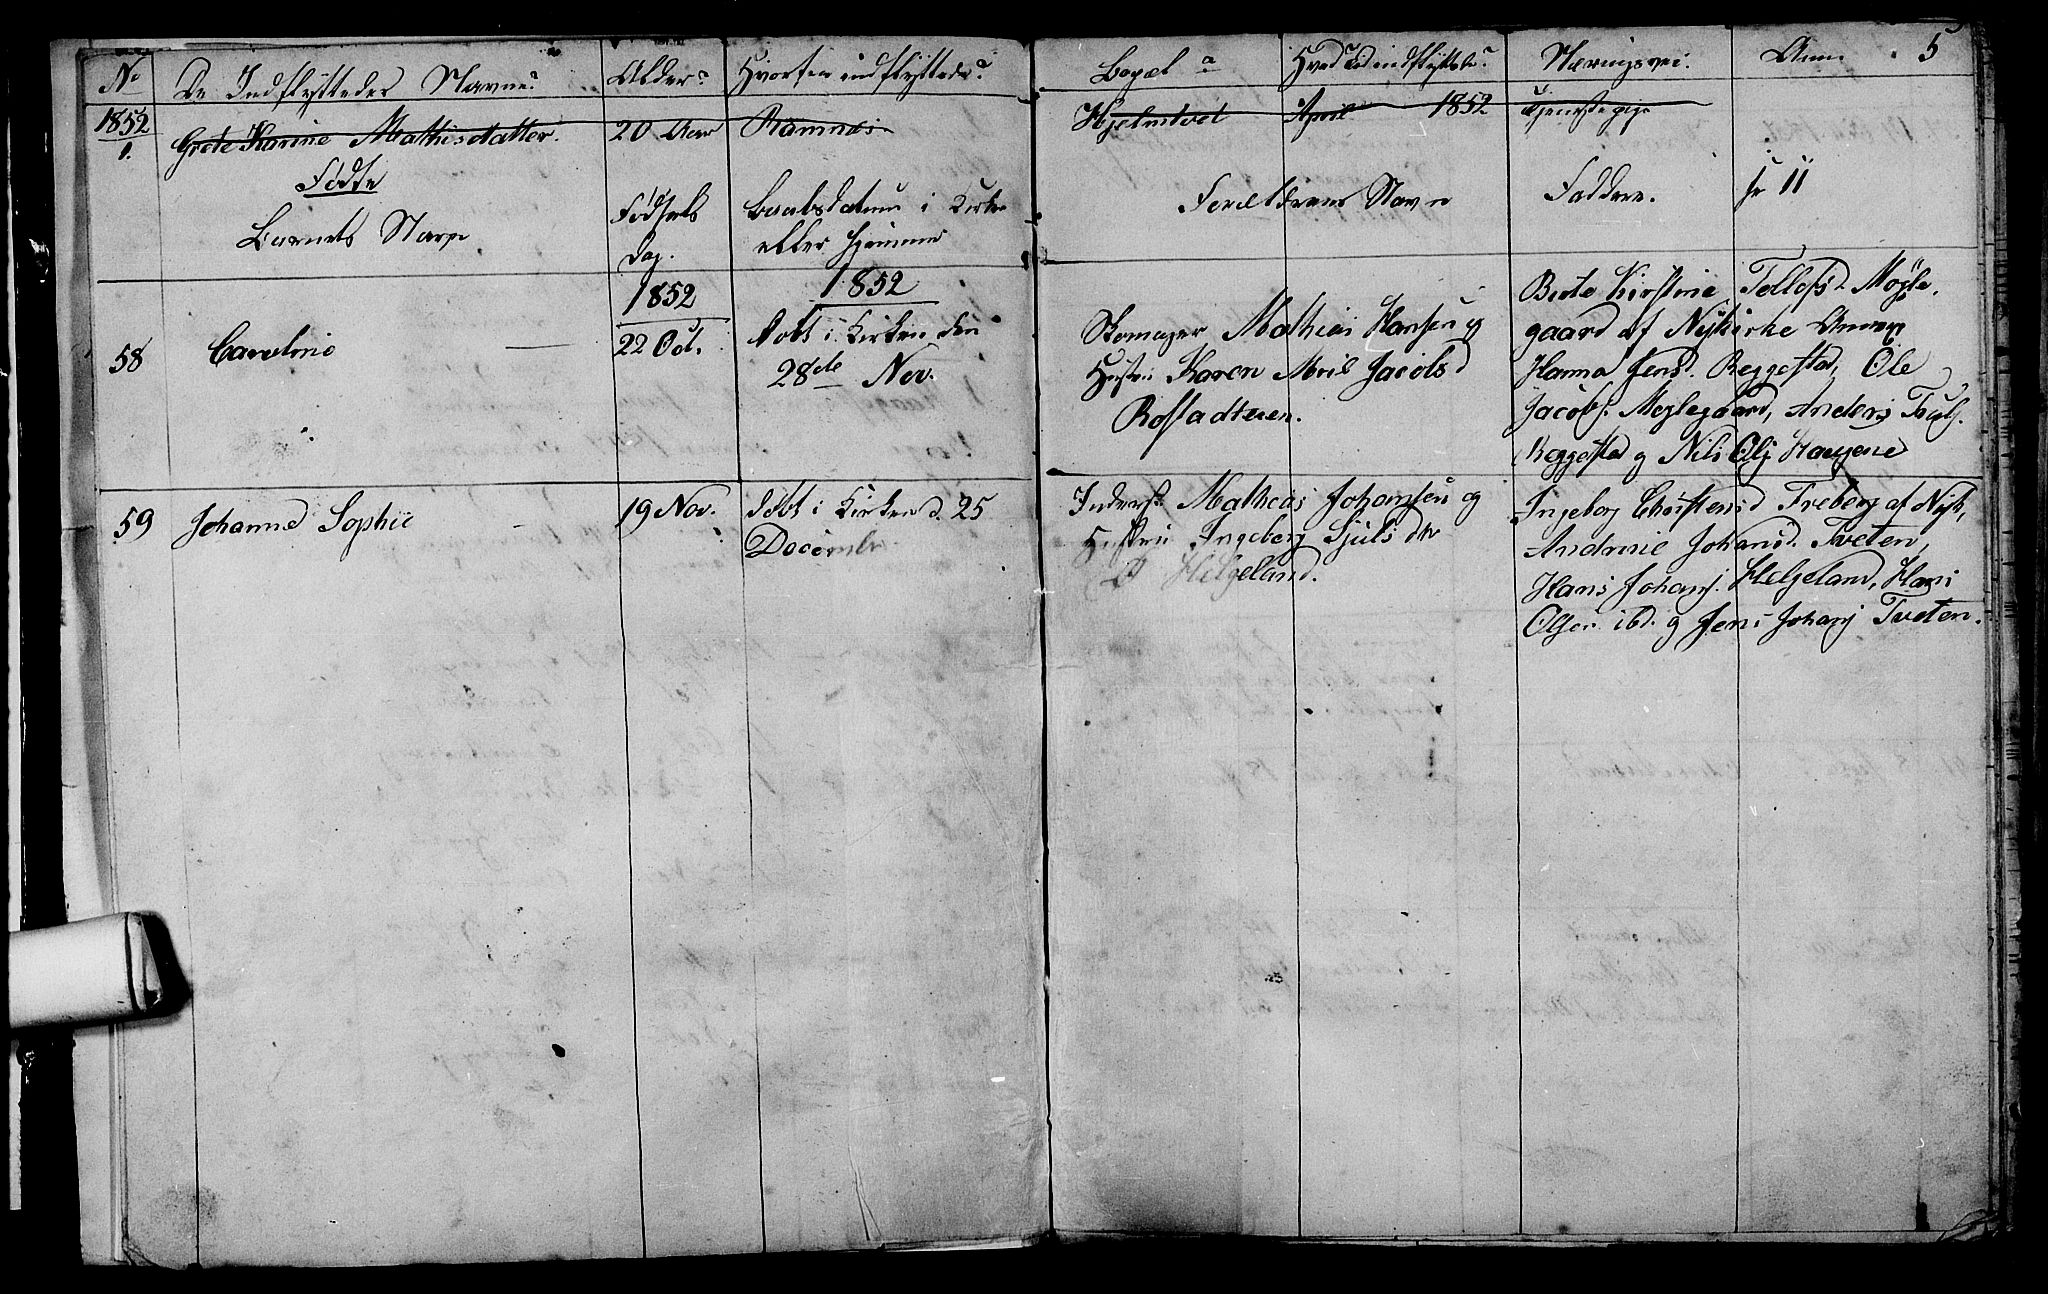 No De Indflyttedes Navne. Alder. Hvorfra indflyttede. Bopæl Hvad Tid indflyttede. Næringsvei. Anm. 5
1852
1. Grete Karine Mathisdatter. 20 Aar Ramnes Hjelmtvet April 1852 Tjenestepige
Fødte
Barnets Navn
Fødsels
Dag.
Daabsdatum i Kirke
eller Hjemme
Forældrenes Navn
Faddere.
11
58 Caroline
1852
22 Oct.
1852
Døbt i Kirken den
28de Nov.
Skomager Mathias Hansen og
Hustru Karen Jacobsd
Rostadteien.
Kirstine Tollefsd. Møgle-
gaard af Nykirke
Hanna Jensd. Beggestad, Ole
Jacobs. Møglegaard, Anders
Beggestad og Nils Ols Haugene
59 Johanne Sophie
19 Nov.
døbt i Kirken d. 25
December.
Inderst Mathias Johansen og
Hustru Ingeborg Sjulsdtr
Helgeland.
Ingeborg Christensd Freberg af Nyk,
Andrine Johansd. Tveten,
Hans Johans. Helgeland, Hans
Olsen ibd. og Jens Johans Tveten.